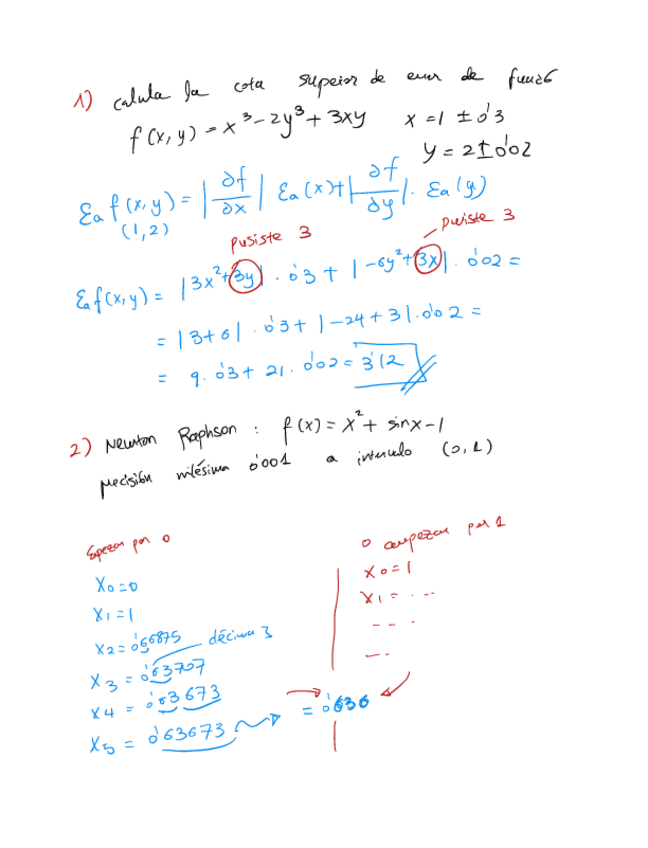 1) calcula la cota superior de error de función
f(x,y) = x³ - 2y³ + 3xy   x = 1 ± 0'3
y = 2 ± 0'02
Ea f(x,y) = |∂f/∂x| Ea(x) + |∂f/∂y| · Ea(y)
(1,2)
pusiste 3   pusiste 3
Ea f(x,y) = |3x² + 3y| · 0'3 + |-6y² + 3x| · 0'02 =
= |3+6| · 0'3 + |-24+3| · 0'02 =
= 9 · 0'3 + 21 · 0'02 = 3'12
2) Newton Raphson : f(x) = x² + sinx - 1
precisión milésima 0'001 a intervalo (0,1)
Empezar por 0   o empezar por 1
X0 = 0   X0 = 1
X1 = 1   X1 = ...
X2 = 0'66875   décima 3   - - -
X3 = 0'63707   - -
X4 = 0'63673   = 0'636
X5 = 0'63673